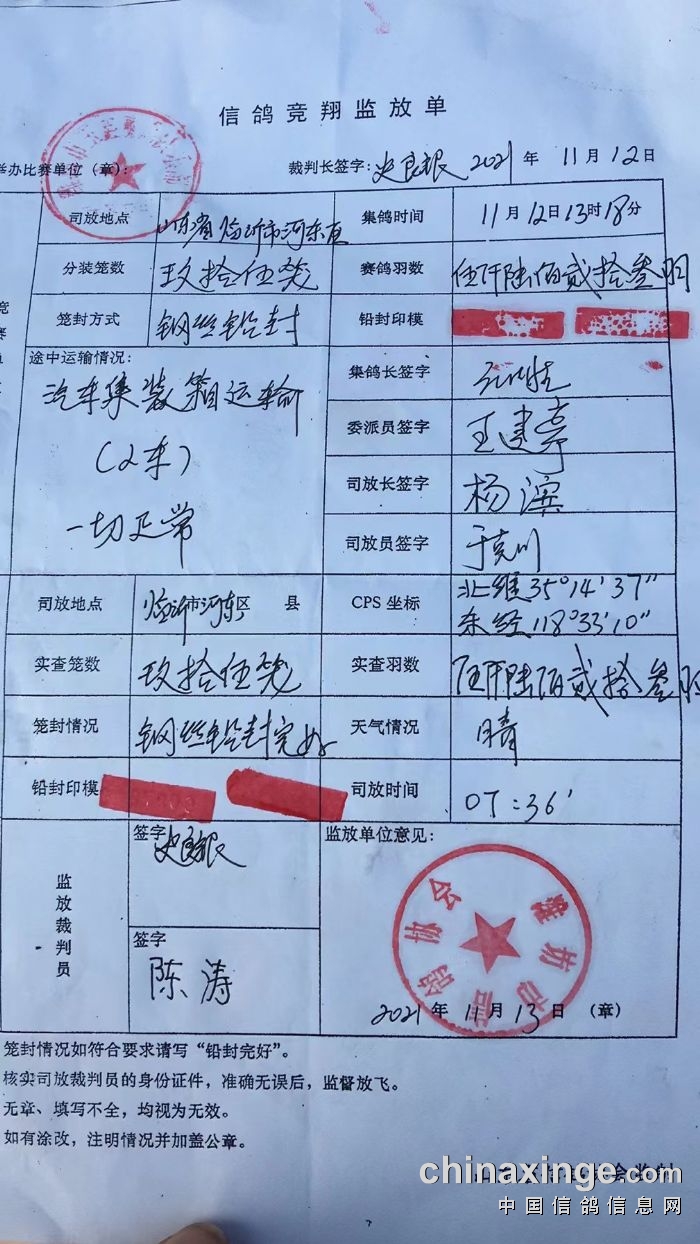 信鸽竞翔监放单
举办比赛单位（章）： 裁判长签字：史良银 2021 年 11 月 12 日
司放地点 山东省临沂市河东区 集鸽时间 11 月 12 日 13 时 18 分
分装笼数 玖拾伍笼 赛鸽羽数 伍仟陆佰贰拾叁羽
笼封方式 钢丝铅封 铅封印模
途中运输情况： 集鸽长签字
汽车集装箱运输 委派员签字 王建亭
（2车） 司放长签字 杨滨
一切正常 司放员签字 于克川
司放地点 临沂市河东区 县 CPS 坐标 北维35°14′37″
东经118°33′10″
实查笼数 玖拾伍笼 实查羽数 伍仟陆佰贰拾叁羽
笼封情况 钢丝铅封完好 天气情况 晴
铅封印模 司放时间 07：36′
监放裁判员 签字 史良银 监放单位意见：
签字
陈涛
潍坊市信鸽协会
2021 年 11 月 13 日 （章）
笼封情况如符合要求请写“铅封完好”。
核实司放裁判员的身份证件，准确无误后，监督放飞。
无章、填写不全，均视为无效。
如有涂改，注明情况并加盖公章。
chinaxinge.com
中国信鸽信息网